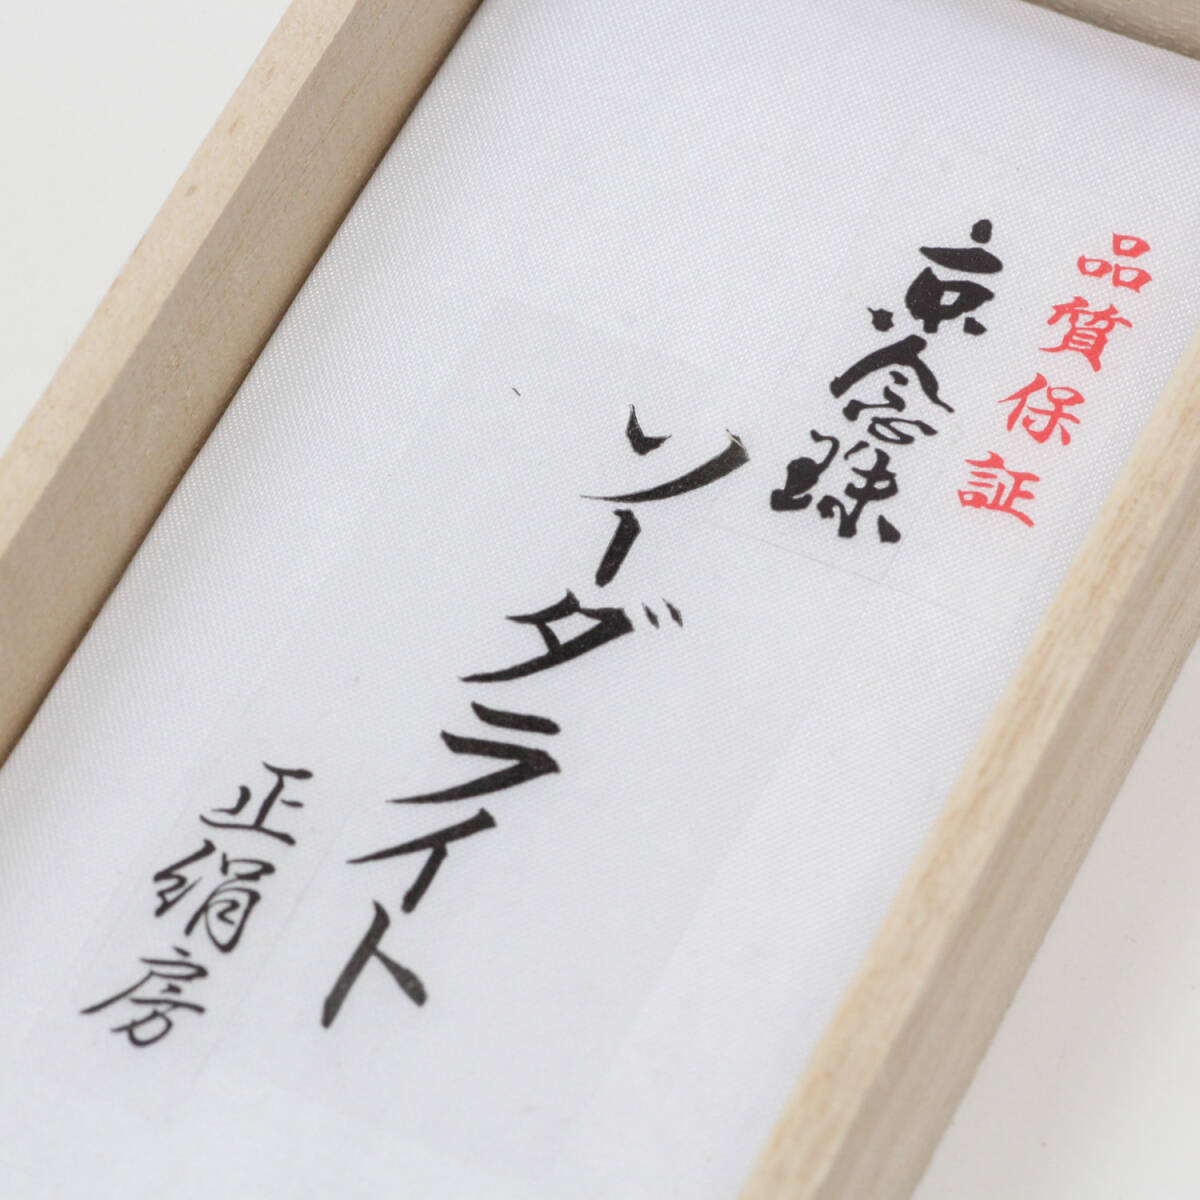 品質保証
京念珠
ソーダライト
正絹房